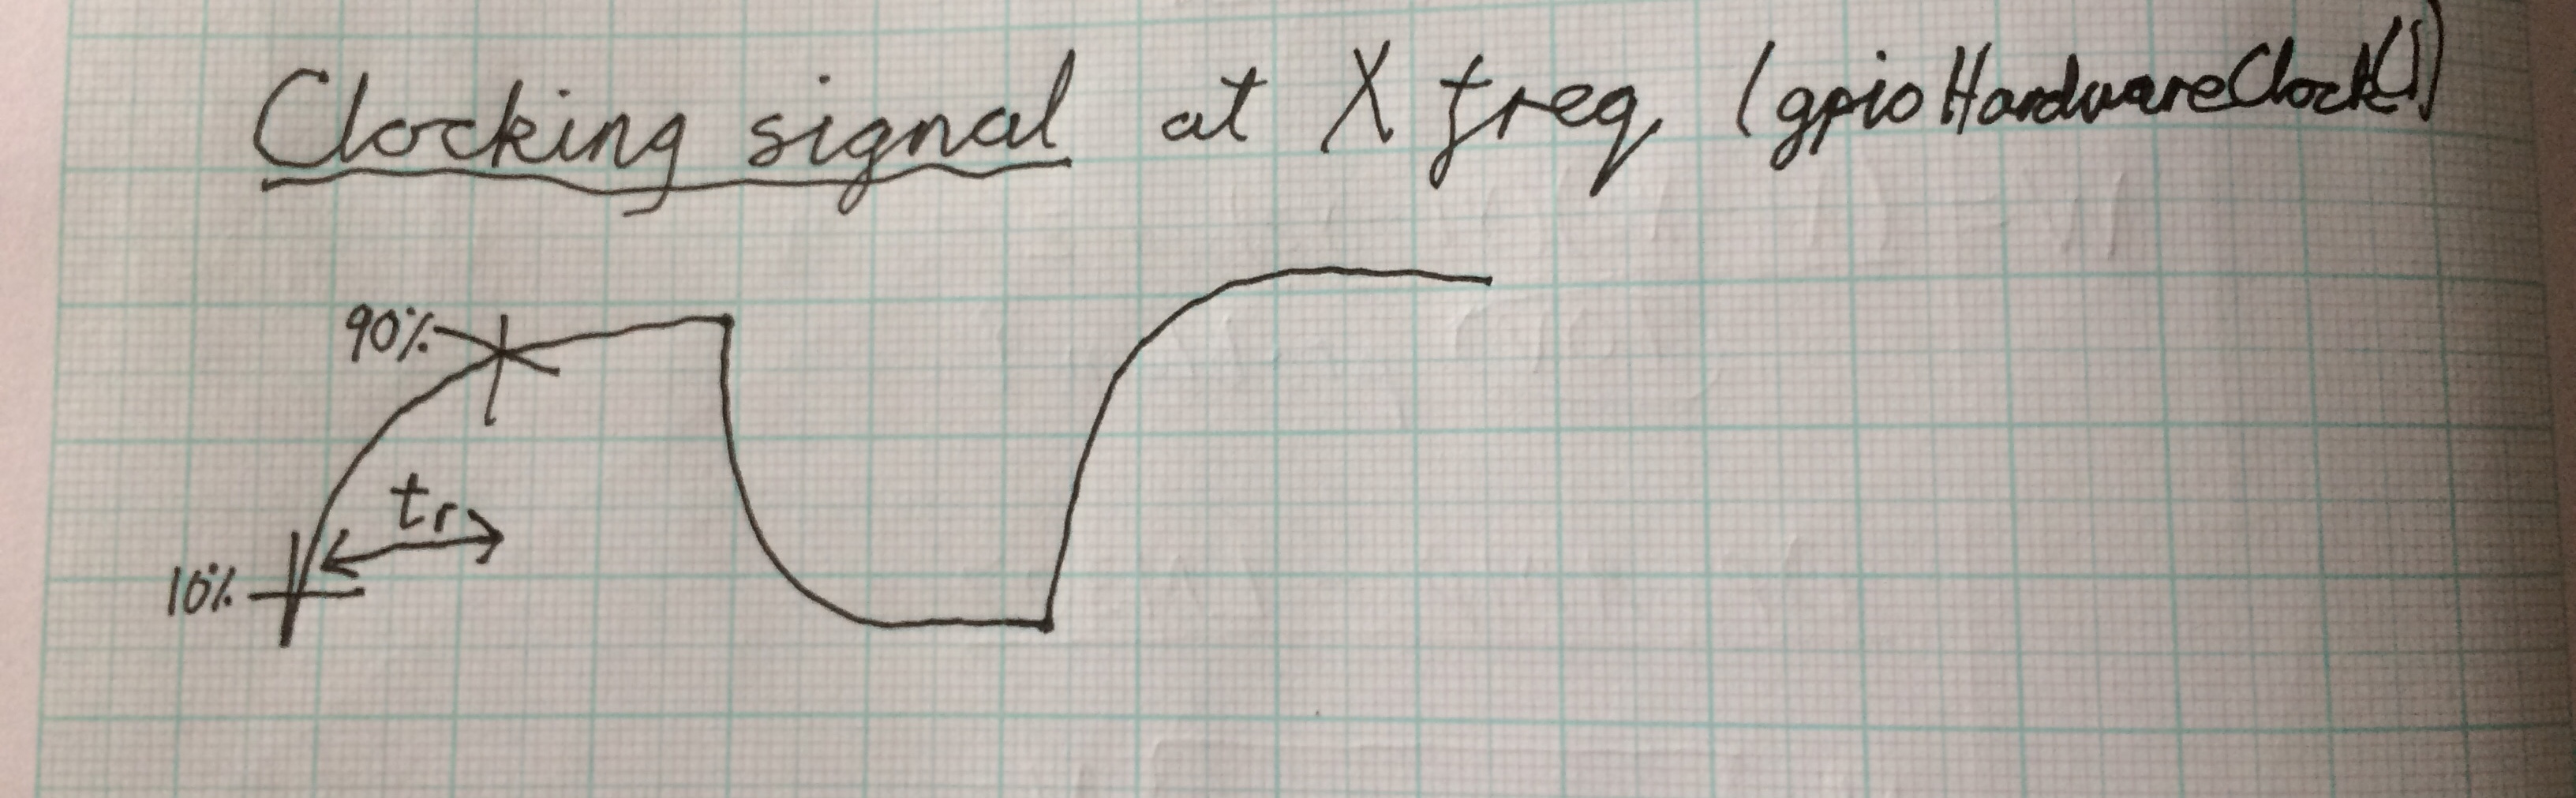 Clocking signal at X freq (gpioHardwareClock())
90%
tr
10%